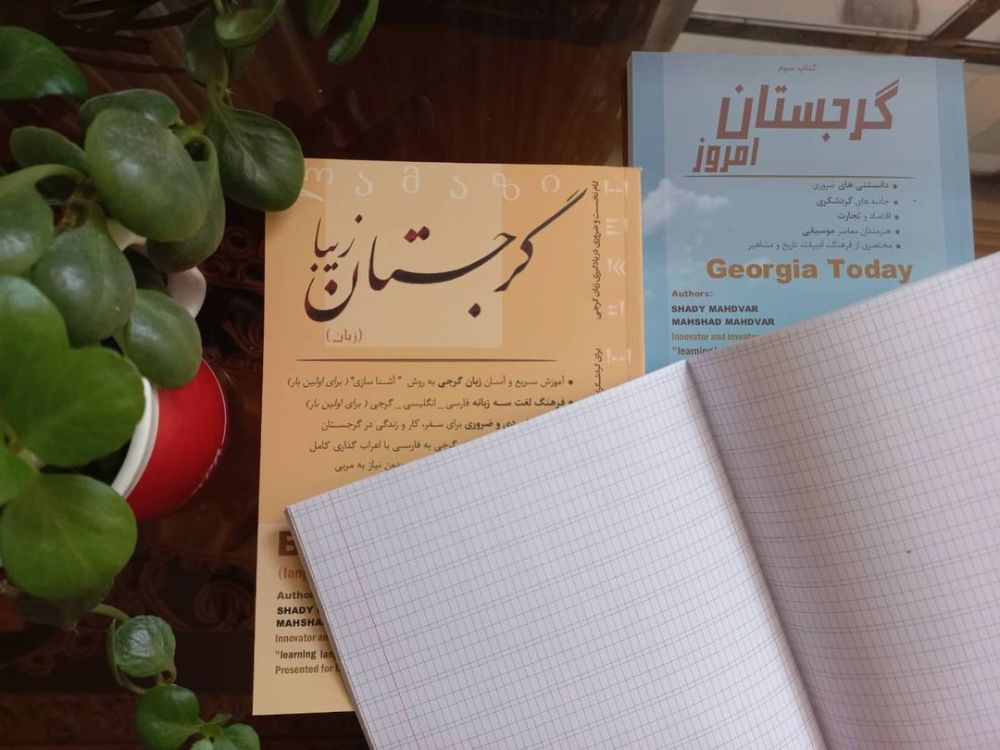 ლამაზი
گرجستان زیبا
(زبان)
• آموزش سریع و آسان زبان گرجی به روش " آشنا سازی" ( برای اولین بار)
• فرهنگ لغت سه زبانه فارسی _ انگلیسی _ گرجی ( برای اولین بار)
دی و ضروری برای سفر، کار و زندگی در گرجستان
گرجی به فارسی با اعراب گذاری کامل
بدون نیاز به مربی
گام نخست و ضروری در یادگیری زبان گرجی
SHADY
Innovator an
Presented for
کتاب سوم
گرجستان
امروز
• دانستنی های ضروری
• جاذبه های گردشگری
• اقتصاد و تجارت
• هنرمندان معاصر موسیقی
• مختصری از فرهنگ، ادبیات، تاریخ و مشاهیر
Georgia Today
Authors:
SHADY MAHDVAR
MAHSHAD MAHDVAR
Innovator and invento
"learning